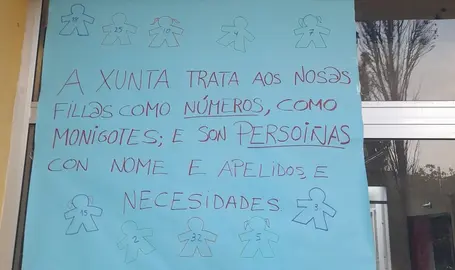 25 10 4 7
A XUNTA TRATA AOS NOS@S
FILL@S COMO NÚMEROS, COMO
MONIGOTES; E SON PERSOIÑAS
CON NOME E APELIDOS, E
NECESIDADES
15 3
2 32 5